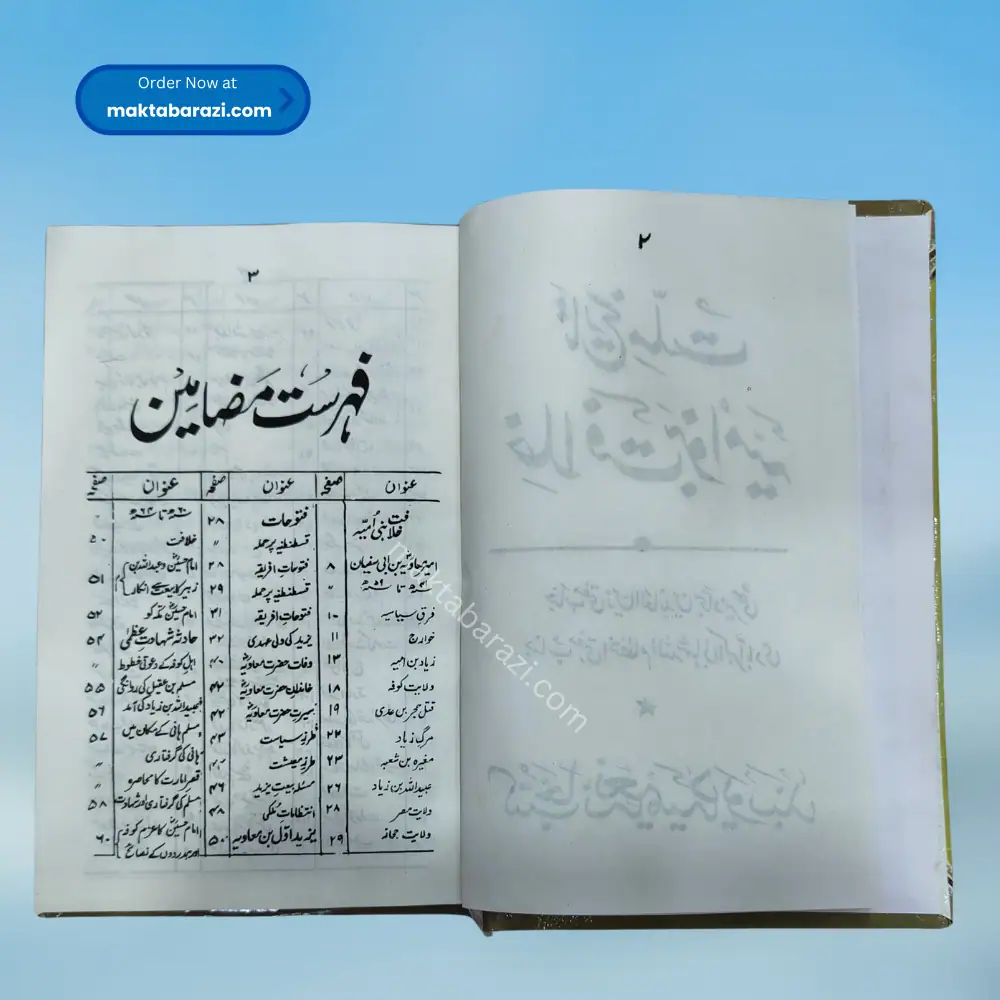 Order Now at
maktabarazi.com
۲
۳
فہرست مضامین
عنوان صفحہ عنوان صفحہ عنوان صفحہ
خلافت بنی اُمیّہ
امیر معاویہؓ بن ابی سفیان ۸
فرق سیاسیہ ۱۰
خوارج ۱۱
زیاد بن امیہ ۱۳
ولایت کوفہ ۱۸
قتل حجر بن عدی ۱۹
مرگ زیاد ۲۲
مغیرہ بن شعبہ ۲۳
عبیداللہ بن زیاد ۲۶
ولایت مصر ۲۸
ولایت حجاز ۲۹
فتوحات ۲۸
قسطنطنیہ پر حملہ "
فتوحات افریقہ ۲۸
قسطنطنیہ پر حملہ ۲۹
فتوحات افریقہ ۳۱
یزید کی ولی عہدی ۳۲
وفات حضرت معاویہؓ ۴۰
خاندان حضرت معاویہؓ ۴۲
سیرت حضرت معاویہؓ ۴۲
طرز سیاست ۴۳
طرز معیشت
مسئلہ بیعت یزید ۴۶
انتظامات ملکی ۴۸
یزید اوّل بن معاویہ ۵۰
۶۰ھ تا ۶۴ھ
خلافت ۵۰
امام حسینؓ و عبداللہ بن
زبیر کا بیعت سے انکار ۵۱
امام حسینؓ مکہ کو ۵۲
حادثہ شہادت عظمیٰ ۵۴
اہل کوفہ کے دعوتی خطوط "
مسلم بن عقیل کی روانگی ۵۵
عبیداللہ بن زیاد کی آمد ۵۶
مسلم ہانی کے مکان میں ۵۷
ہانی کی گرفتاری "
قصر امارت کا محاصرہ
مسلم کی گرفتاری اور شہادت ۵۸
امام حسینؓ کا عزم کوفہ ۶۰
اور ہمدردوں کے نصائح
maktabarazi.com